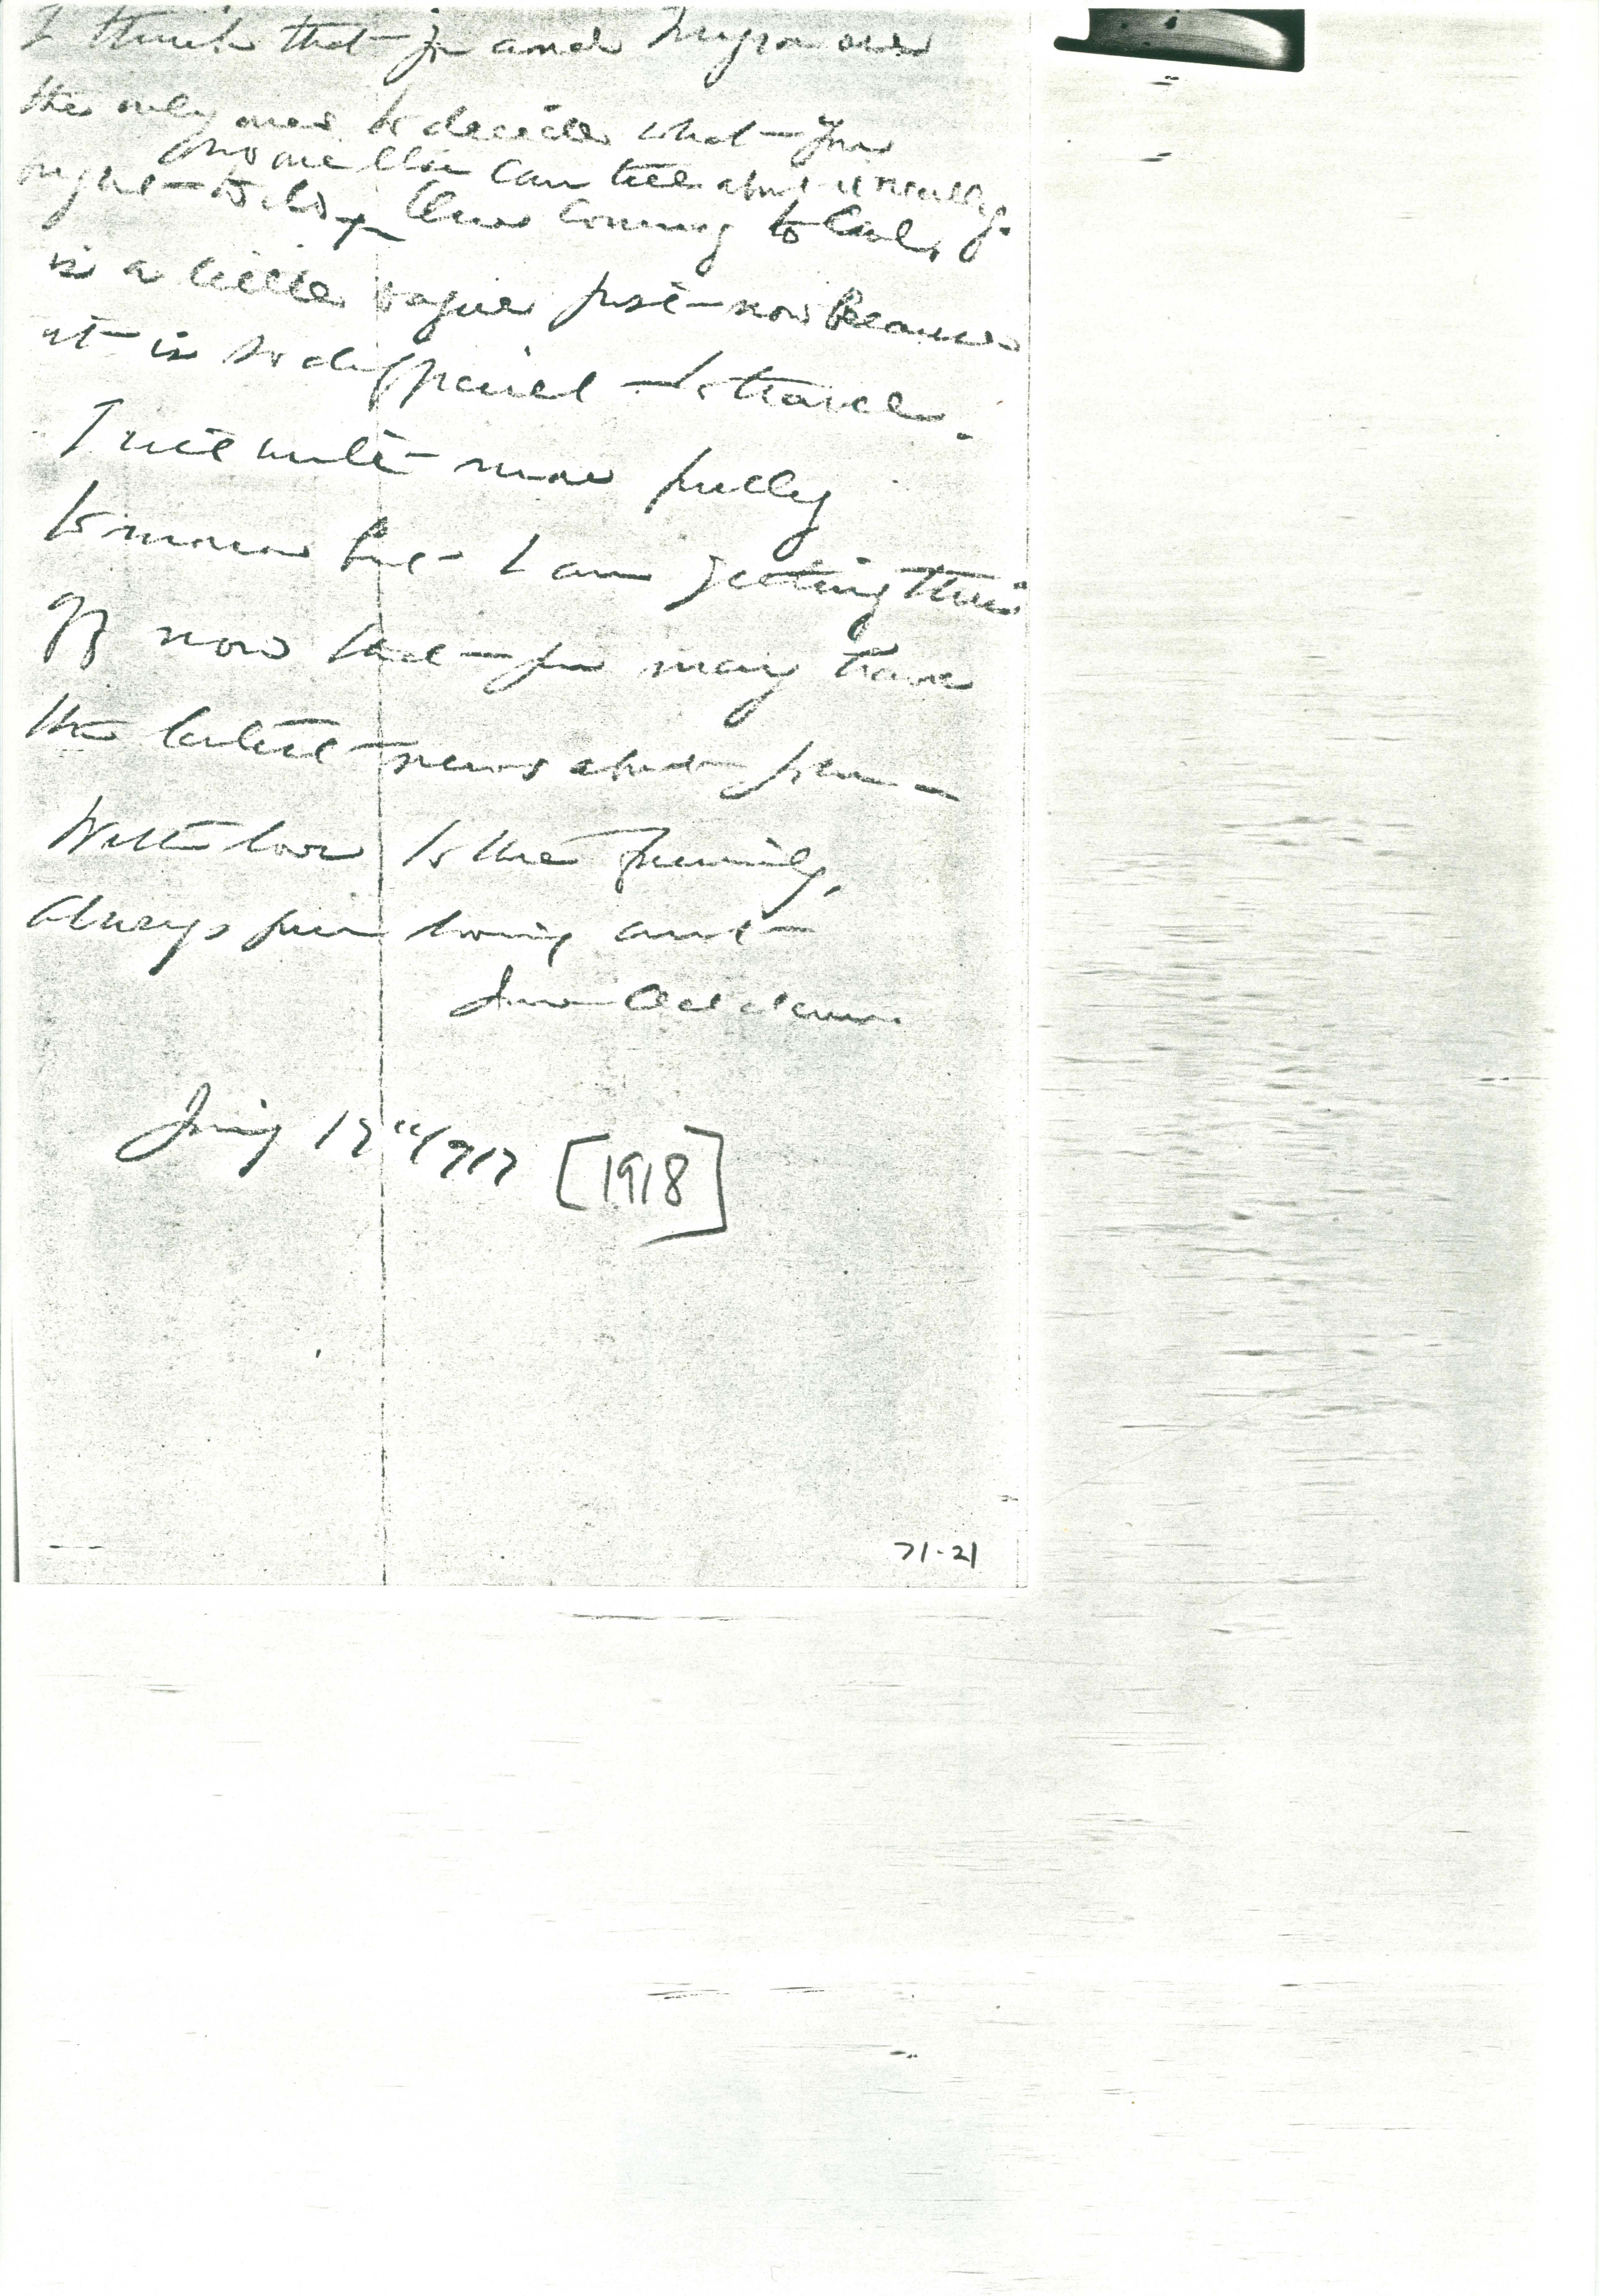 I think that you and Myra are
the only ones to decide what you
no one else can tell about it really.
right to do x
coming to Cal.
is a little vague just now because
it is so difficult to travel.
I will write more fully
tomorrow but I am getting this
off now that you may have
the latest news about
With love to the family,
Always your loving aunt
Jane Addams.
17" 1917 [1918]
71-21